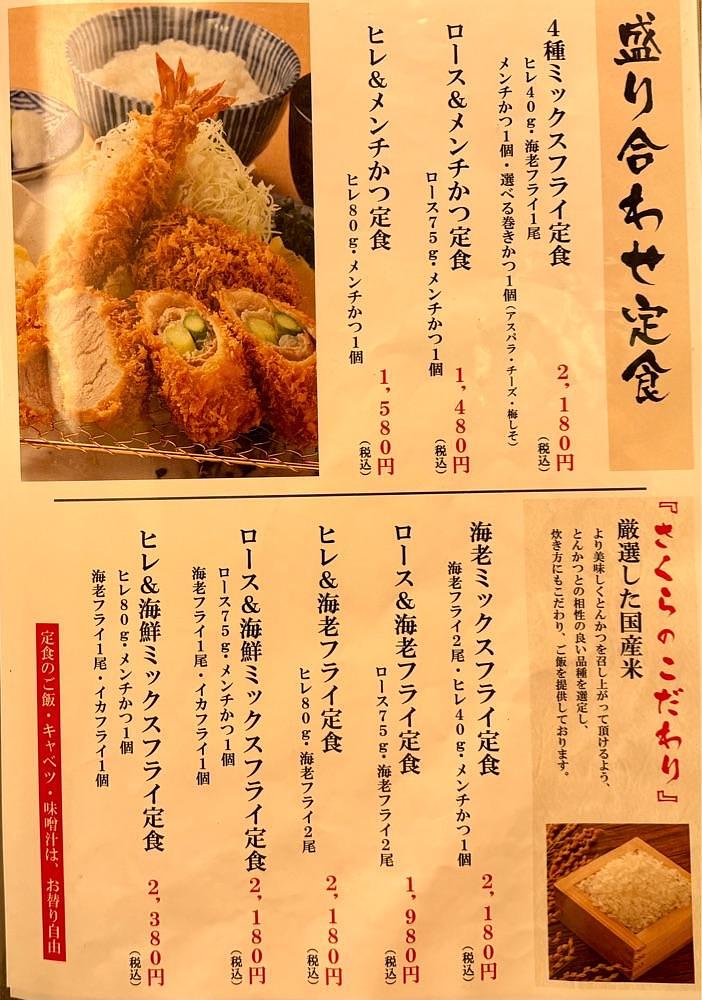 盛り合わせ定食
4種ミックスフライ定食
ヒレ40g・海老フライ1尾
メンチかつ1個・選べる巻きかつ1個(アスパラ・チーズ・梅しそ)
2,180円
(税込)
ロース&メンチかつ定食
ロース75g・メンチかつ1個
1,480円
(税込)
ヒレ&メンチかつ定食
ヒレ80g・メンチかつ1個
1,580円
(税込)
『さくらのこだわり』
厳選した国産米
より美味しくとんかつを召し上がって頂けるよう、
とんかつとの相性の良い品種を選定し、
炊き方にもこだわり、ご飯を提供しております。
海老ミックスフライ定食
海老フライ2尾・ヒレ40g・メンチかつ1個
2,180円
(税込)
ロース&海老フライ定食
ロース75g・海老フライ2尾
1,980円
(税込)
ヒレ&海老フライ定食
ヒレ80g・海老フライ2尾
2,180円
(税込)
ロース&海鮮ミックスフライ定食
ロース75g・メンチかつ1個
海老フライ1尾・イカフライ1個
2,180円
(税込)
ヒレ&海鮮ミックスフライ定食
ヒレ80g・メンチかつ1個
海老フライ1尾・イカフライ1個
2,380円
(税込)
定食のご飯・キャベツ・味噌汁は、お替り自由